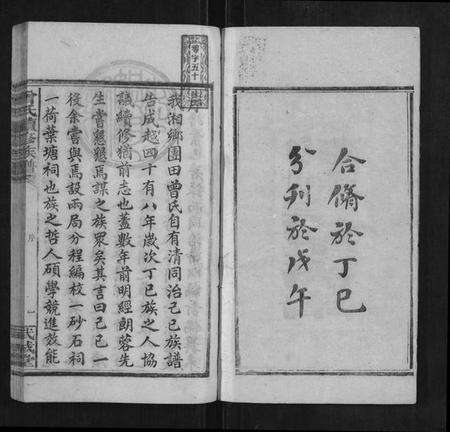 合脩於丁巳
分刊於戊午
尊字五十
我湘鄉團田曾氏自有清同治己巳族譜
告成越四十有八年歲次丁巳族之人協
議續修猶前志也蓋數年前明經朗蓉先
生嘗懇懇焉謀之族眾矣其言曰己巳一
役余嘗與焉設兩局分程編校一砂石祠
一荷葉塘祠也族之哲人碩學競進效能
曾氏續修族譜
序
一